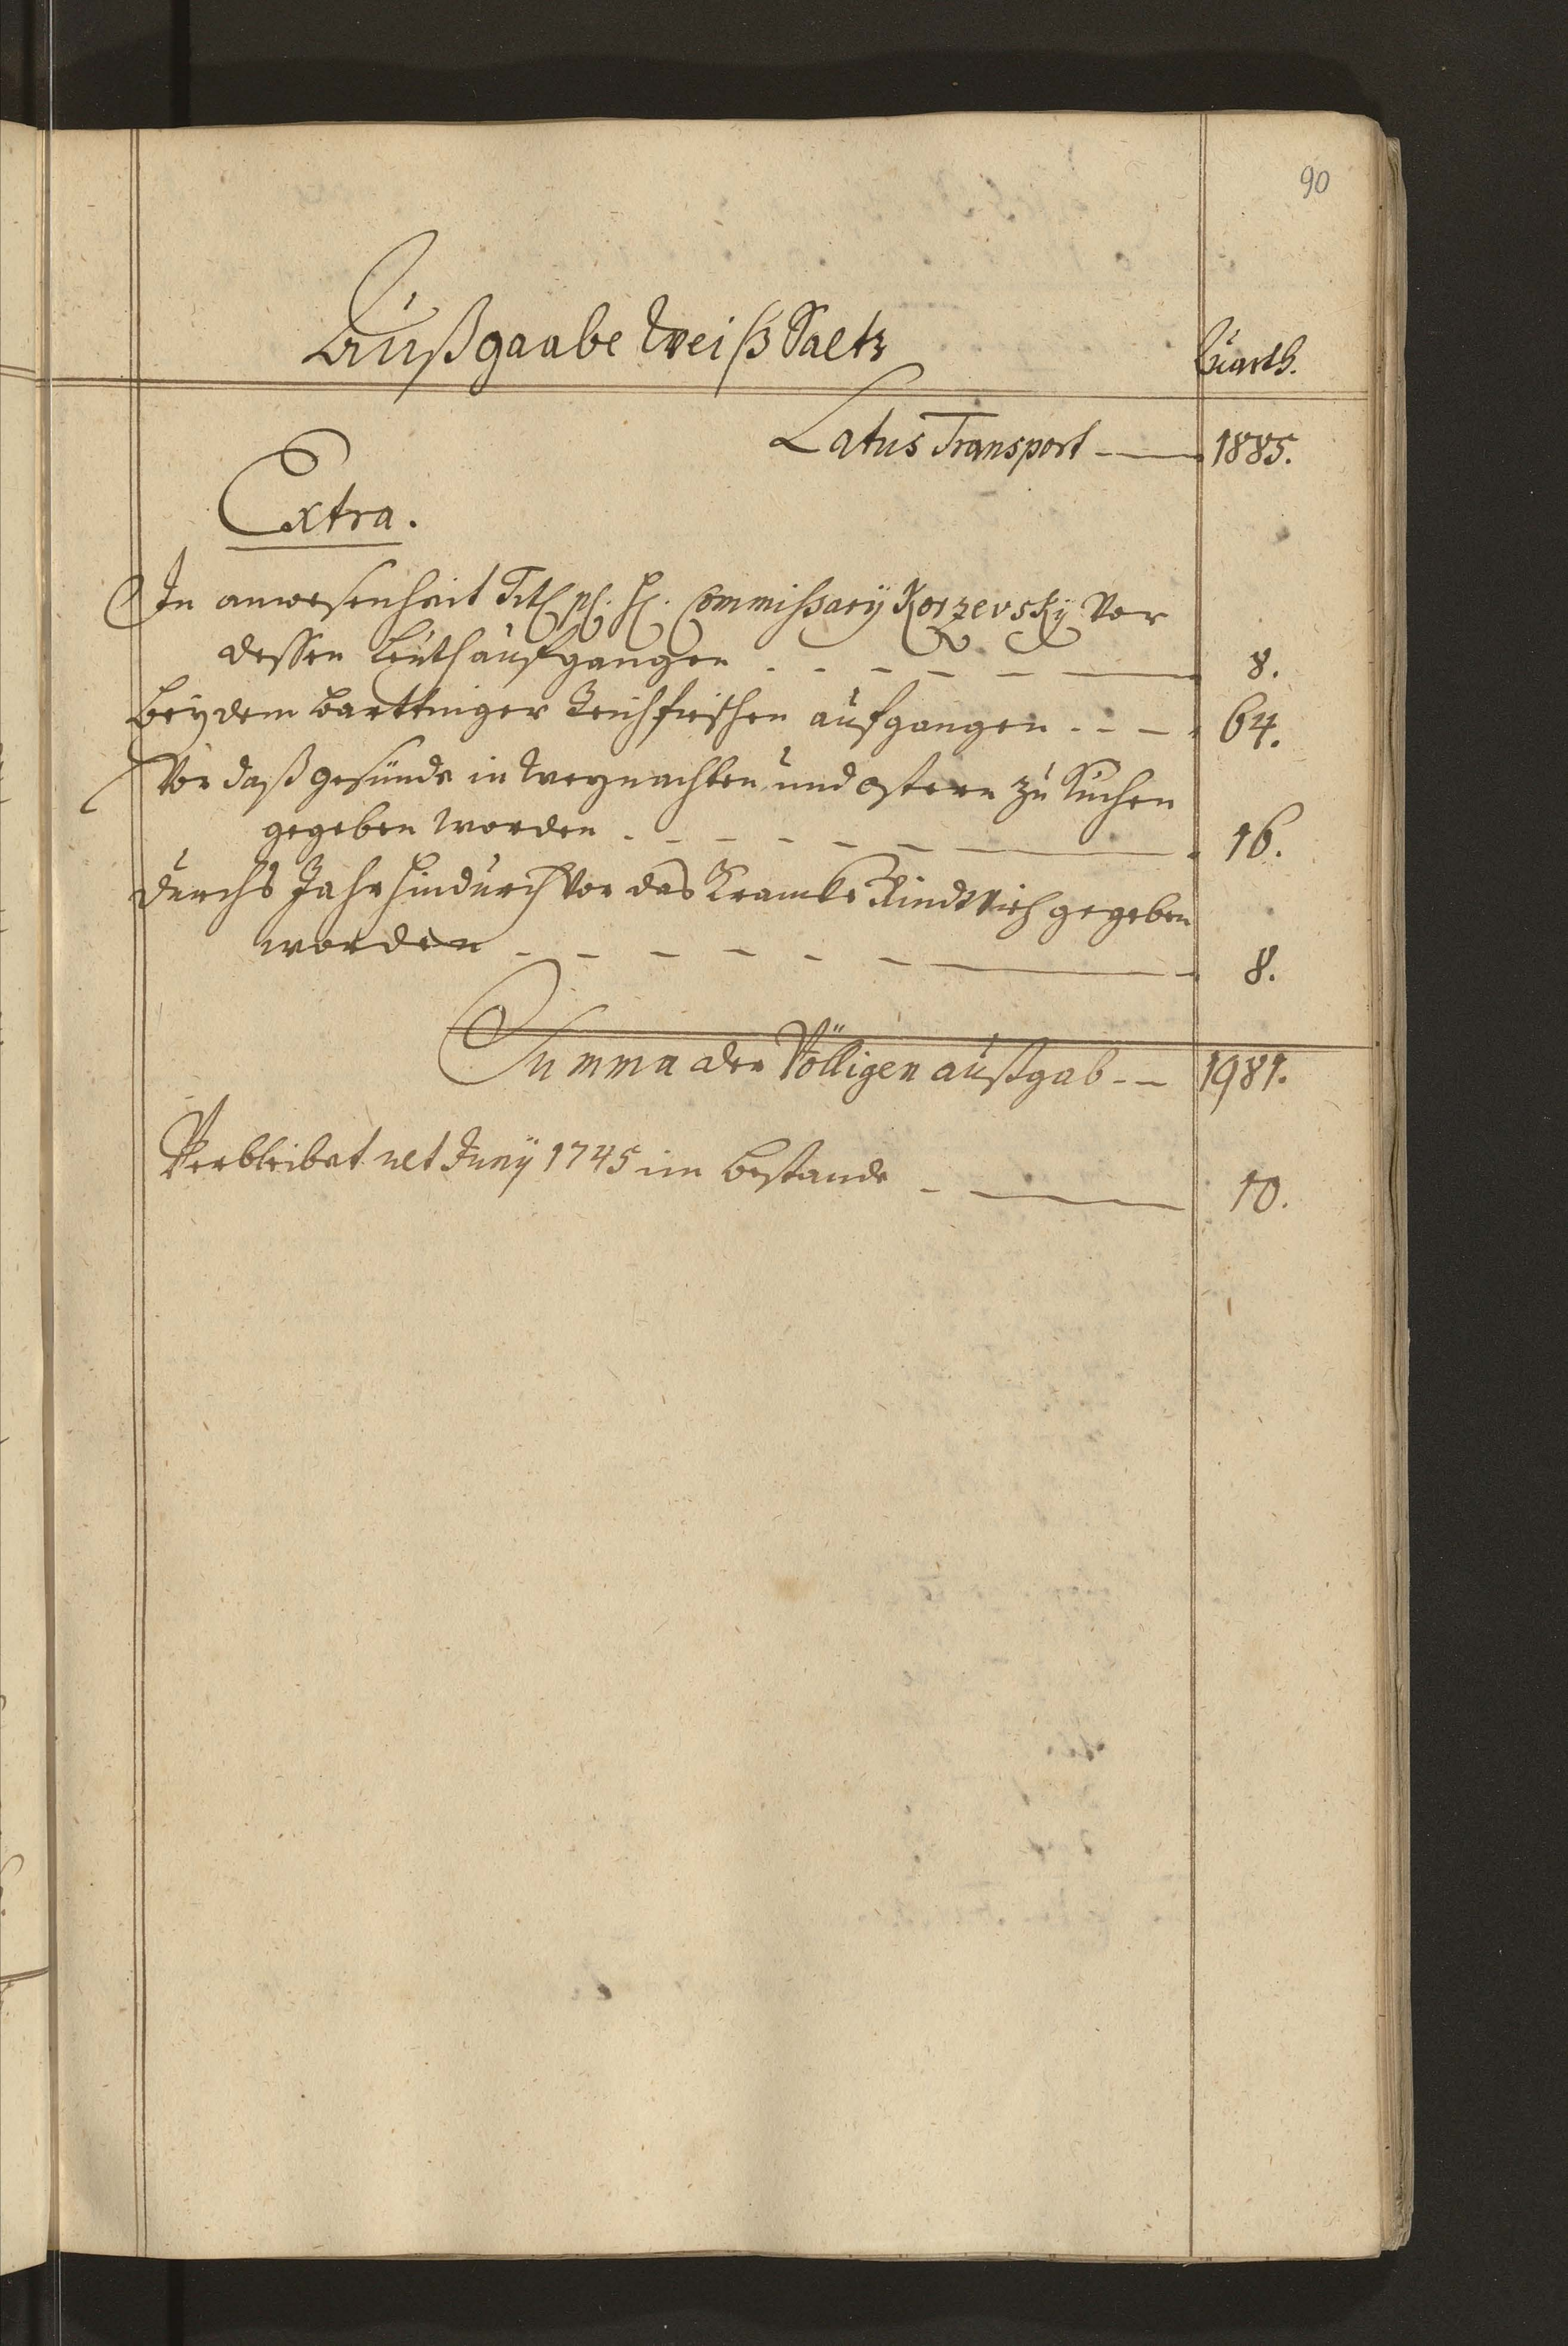 90
Außgaabe Weiß Saltz
Quarth.
Latus Transport - 1885.
Extra.
In anwesenheit Titl. pl. H. Commissarÿ Korzevskÿ Vor
dessen Leüth aufgangen - 8.
Beÿ dem Barttniger Teichfischen aufgangen - 64.
Vor daß gesünde in Weÿnachten und Ostern zu Kuchen
gegeben worden - 16.
Durchs Jahr hindurch Vor das Krancke Rind Vieh gegeben
worden - 8.
Summa der Völligen außgab - 1981.
Verbleibet ult Junÿ 1745 im Bestande - 10.